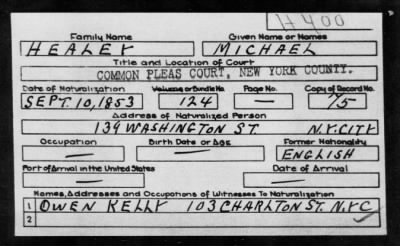 H400
Family Name Given Name or Names
HEALEY MICHAEL
Title and Location of Court
COMMON PLEAS COURT, NEW YORK COUNTY.
Date of Naturalization Volume or Bundle No. Page No. Copy of Record No.
SEPT. 10, 1853 124 — 75
Address of Naturalized Person
139 WASHINGTON ST. N.Y. CITY
Occupation Birth Date or Age Former Nationality
— — ENGLISH
Port of Arrival in the United States Date of Arrival
— —
Names, Addresses and Occupations of Witnesses To Naturalization
1 OWEN KELLY 103 CHARLTON ST. NYC
2